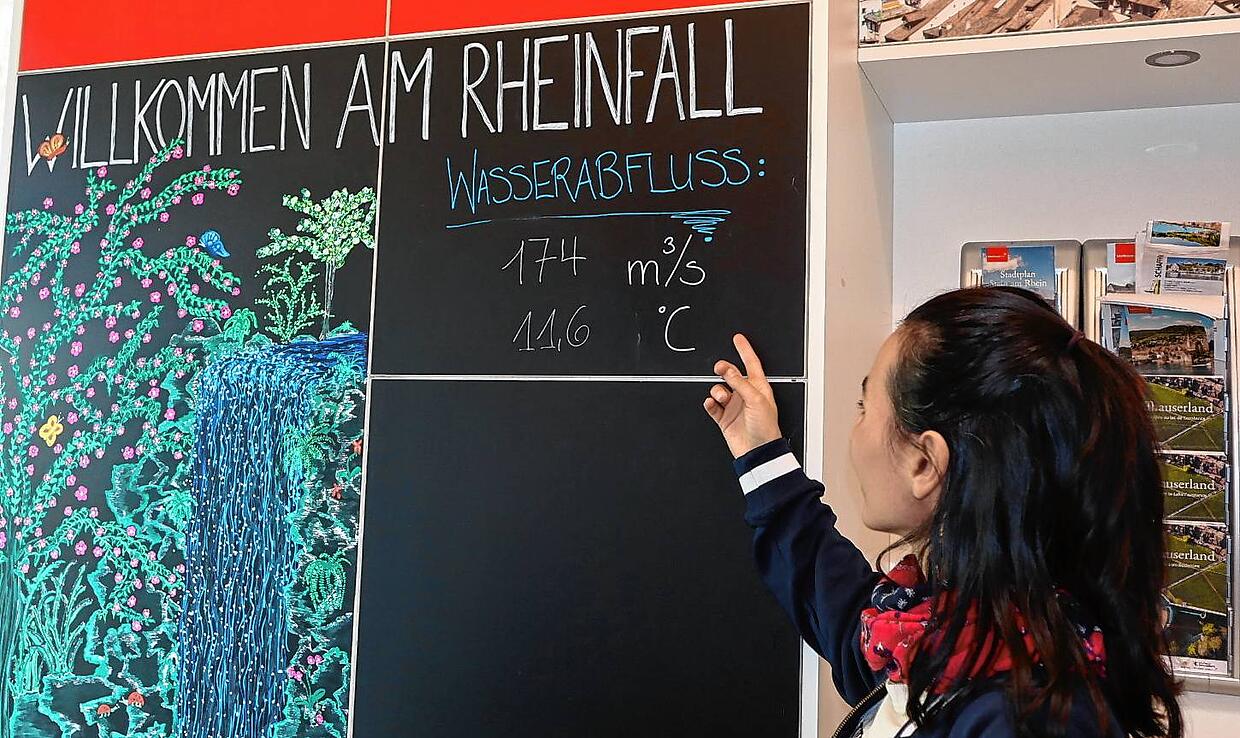 WILLKOMMEN AM RHEINFALL
WASSERABFLUSS:
174 m³/s
11,6 °C
Stadtplan
Stein am Rhein
auserland
auserland
auserland